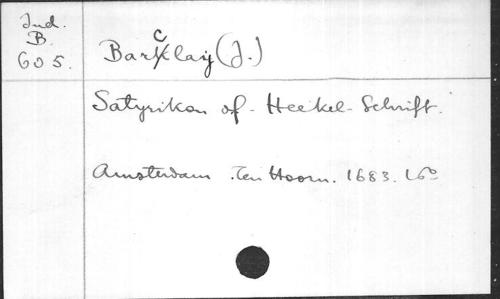 Jud.
B.
605.
Barclaij (J.)
Satyrikon of - Heekel-Schrift.
Amsterdam. Ten Hoorn. 1683. 16º